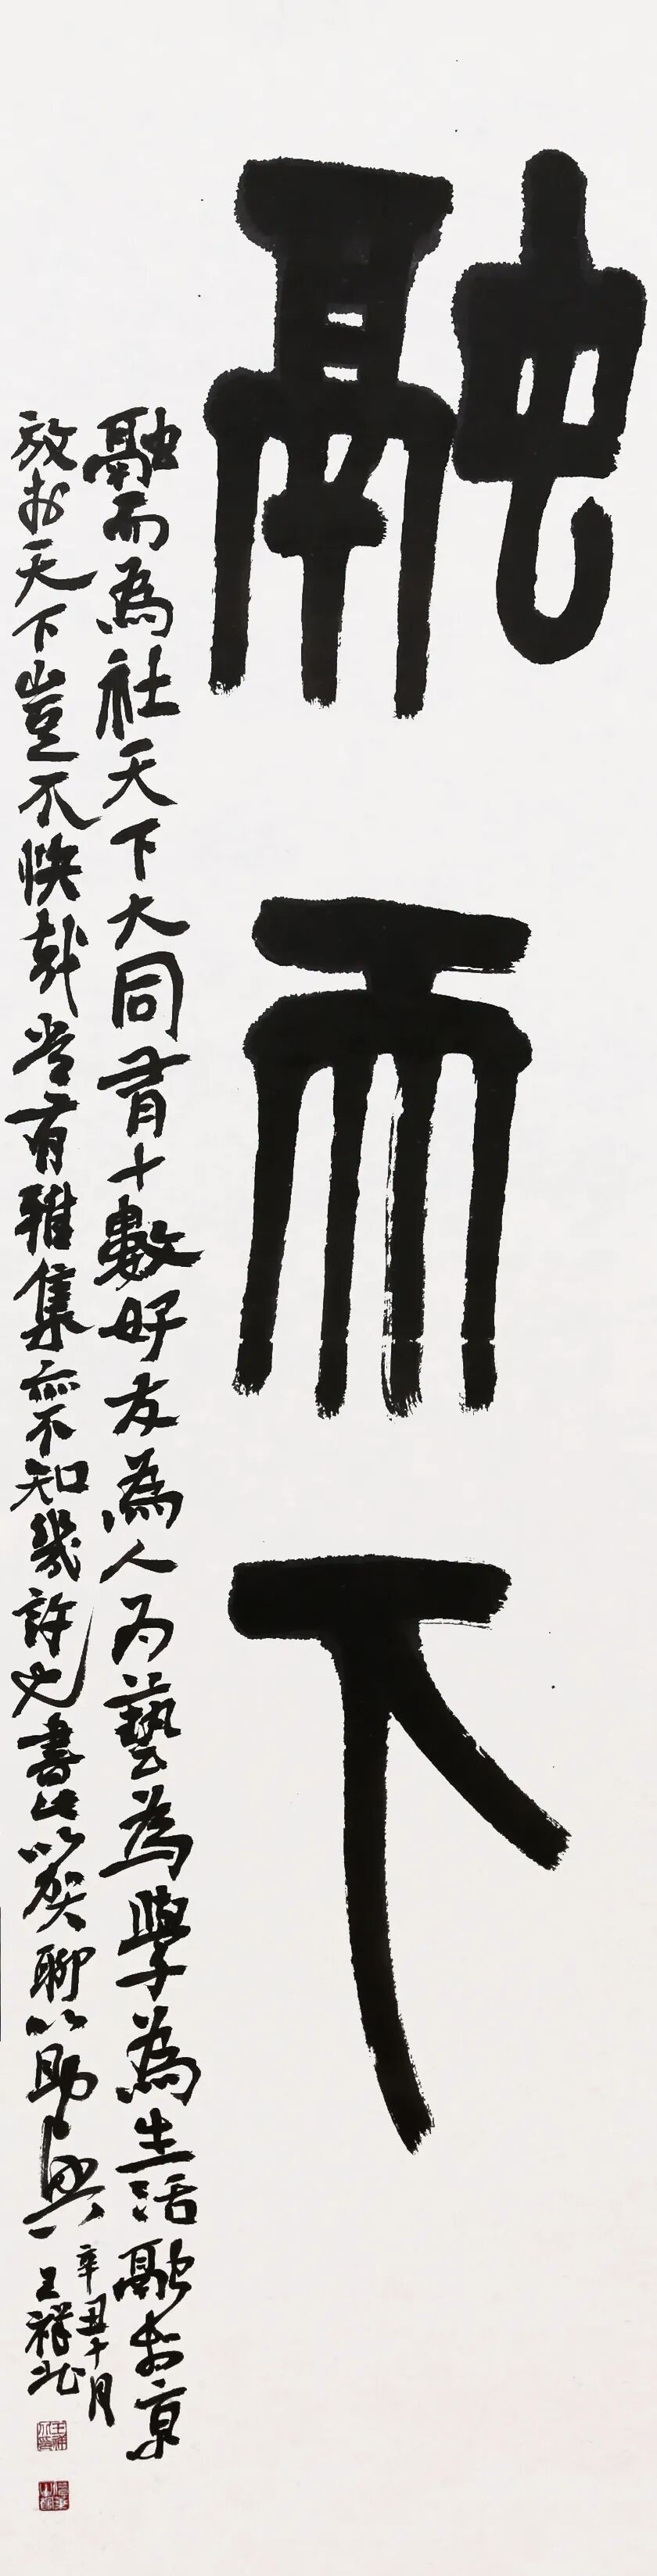 融而下
融而為社天下大同有十數好友為人為藝為學為生活融於京
放於天下豈不快哉嘗有雅集亦不知幾許也書此以賀聊以助興
辛丑十月
王祥北